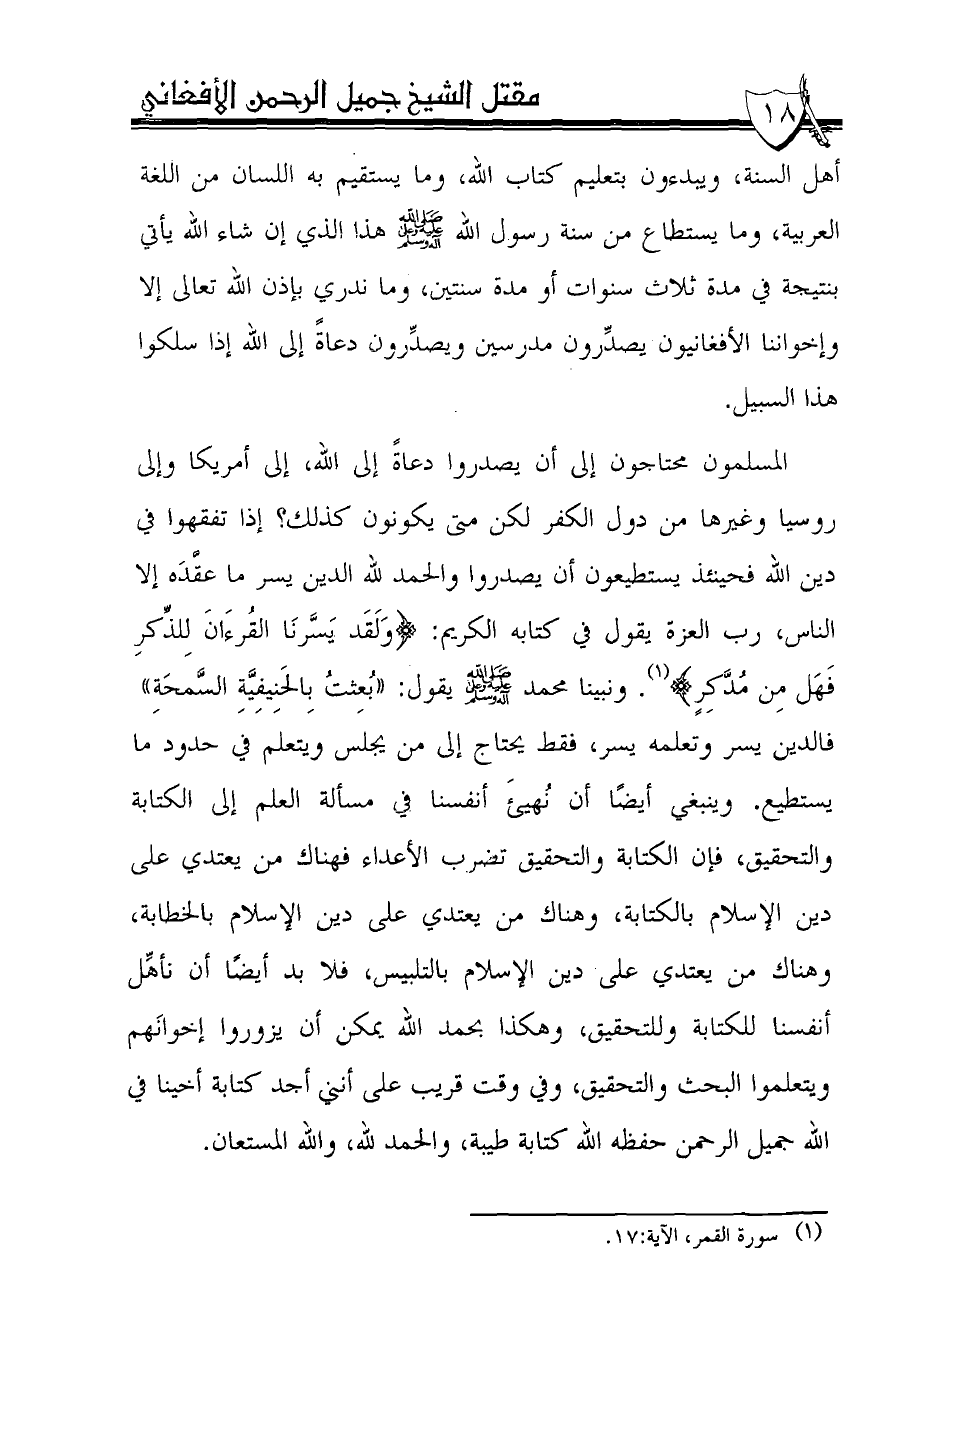 مقتل الشيخ جميل الرحمن الأفغاني
١٨
أهل السنة، ويبدءون بتعليم كتاب الله، وما يستقيم به اللسان من اللغة
العربية، وما يستطاع من سنة رسول الله ﷺ هذا الذي إن شاء الله يأتي
بنتيجة في مدة ثلاث سنوات أو مدة سنتين، وما ندري بإذن الله تعالى إلا
وإخواننا الأفغانيون يصدِّرون مدرسين ويصدِّرون دعاةً إلى الله إذا سلكوا
هذا السبيل.
المسلمون محتاجون إلى أن يصدروا دعاةً إلى الله، إلى أمريكا وإلى
روسيا وغيرها من دول الكفر لكن متى يكونون كذلك؟ إذا تفقهوا في
دين الله فحينئذ يستطيعون أن يصدروا والحمد لله الدين يسر ما عقَّدَه إلا
الناس، رب العزة يقول في كتابه الكريم: ﴿وَلَقَد يَسَّرنَا القُرءَانَ لِلذِّكرِ
فَهَل مِن مُدَّكِرٍ﴾(١). ونبينا محمد ﷺ يقول: «بُعِثتُ بِالحَنِيفِيَّةِ السَّمحَةِ»
فالدين يسر وتعلمه يسر، فقط يحتاج إلى من يجلس ويتعلم في حدود ما
يستطيع. وينبغي أيضًا أن نُهيئَ أنفسنا في مسألة العلم إلى الكتابة
والتحقيق، فإن الكتابة والتحقيق تضرب الأعداء فهناك من يعتدي على
دين الإسلام بالكتابة، وهناك من يعتدي على دين الإسلام بالخطابة،
وهناك من يعتدي على دين الإسلام بالتلبيس، فلا بد أيضًا أن نأهِّل
أنفسنا للكتابة وللتحقيق، وهكذا بحمد الله يمكن أن يزوروا إخوانَهم
ويتعلموا البحث والتحقيق، وفي وقت قريب على أنني أجد كتابة أخينا في
الله جميل الرحمن حفظه الله كتابة طيبة، والحمد لله، والله المستعان.
(١) سورة القمر، الآية:١٧.